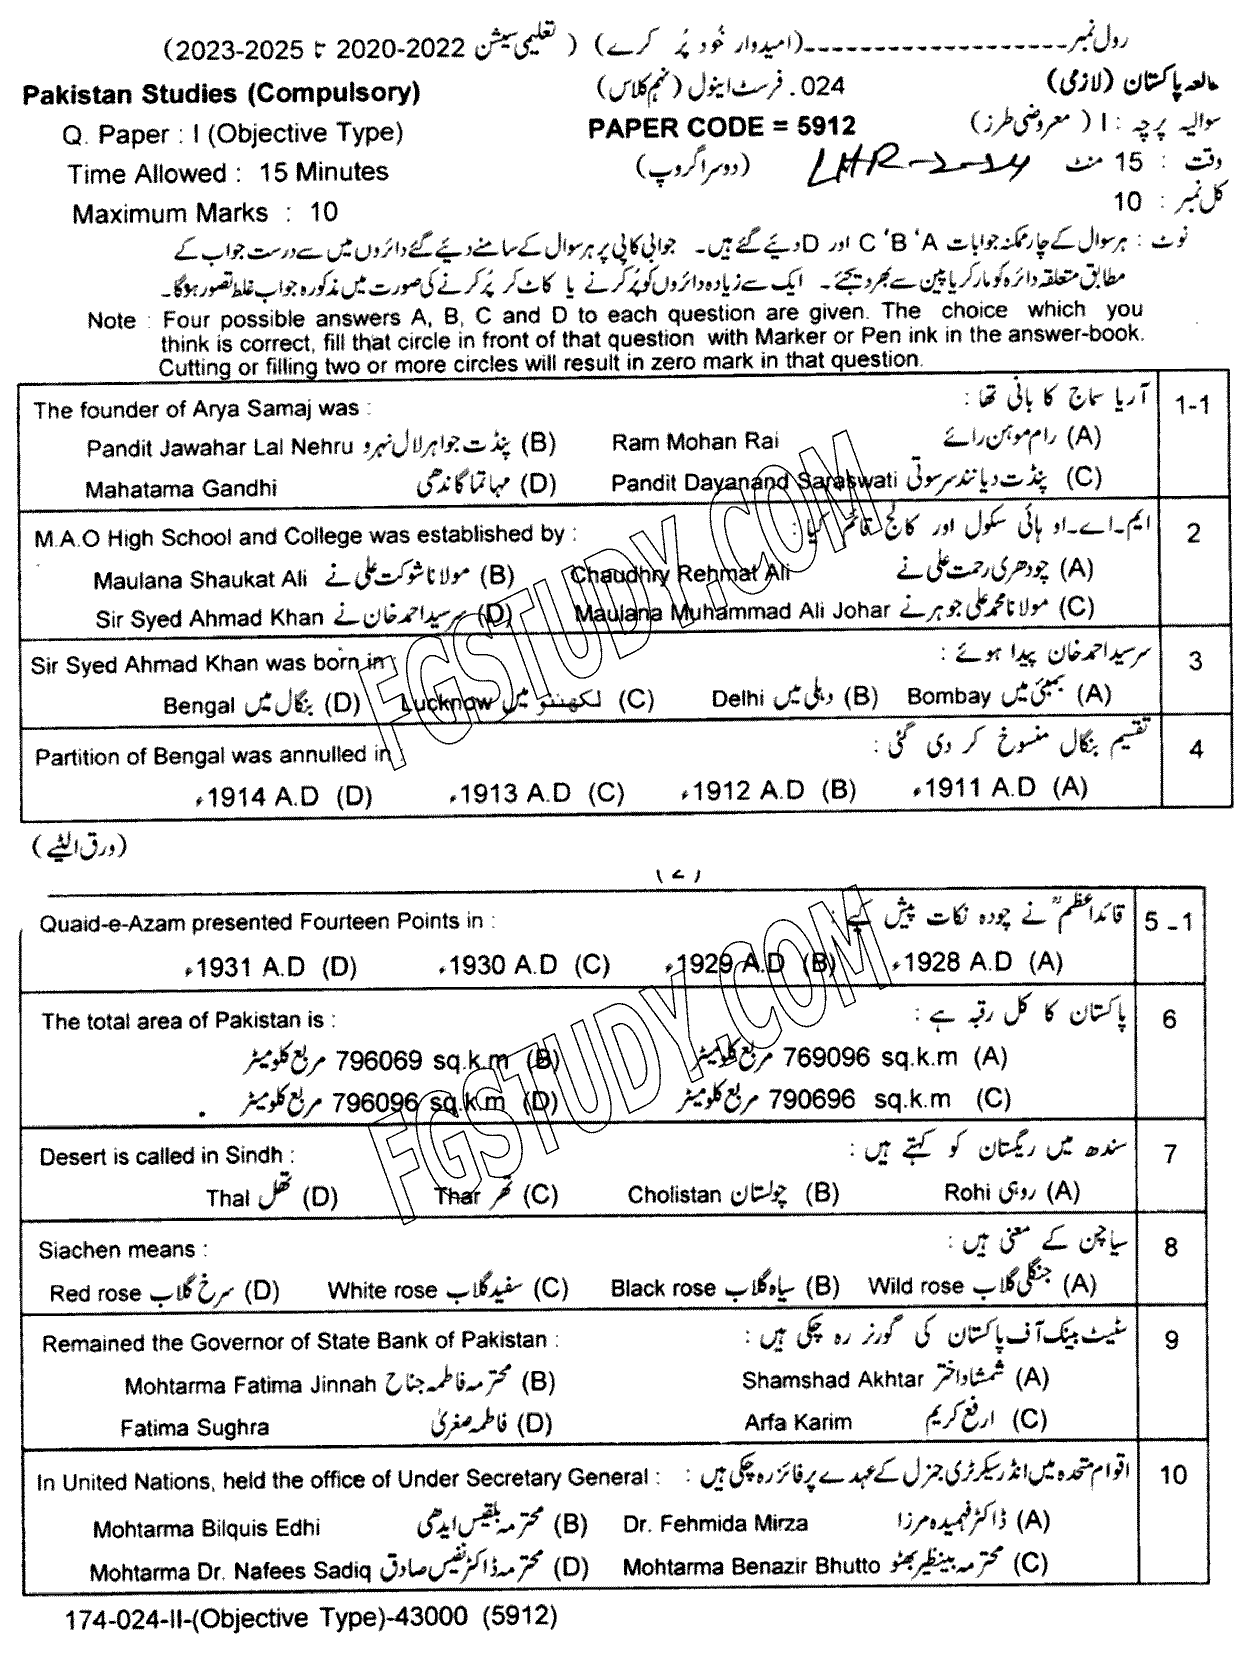 رول نمبر--------------------(امیدوار خُود پُر کرے) ( تعلیمی سیشن 2022-2020 تا 2025-2023)
Pakistan Studies (Compulsory) 024. فرسٹ اینول (نہم کلاس) مطالعہ پاکستان (لازمی)
Q. Paper : I (Objective Type) PAPER CODE = 5912 سوالیہ پرچہ : I ( معروضی طرز)
Time Allowed : 15 Minutes (دوسرا گروپ) LHR-2-24 وقت : 15 منٹ
Maximum Marks : 10 کل نمبر : 10
نوٹ : ہر سوال کے چار ممکنہ جوابات A ' B ' C اور D دیئے گئے ہیں۔ جوابی کاپی پر ہر سوال کے سامنے دیئے گئے دائروں میں سے درست جواب کے
مطابق متعلقہ دائرہ کو مارکر یا پین سے بھر دیجئے۔ ایک سے زیادہ دائروں کو پُر کرنے یا کاٹ کر پُر کرنے کی صورت میں مذکورہ جواب غلط تصور ہوگا۔
Note : Four possible answers A, B, C and D to each question are given. The choice which you
think is correct, fill that circle in front of that question with Marker or Pen ink in the answer-book.
Cutting or filling two or more circles will result in zero mark in that question.
The founder of Arya Samaj was : آریا سماج کا بانی تھا : 1-1
Pandit Jawahar Lal Nehru پنڈت جواہر لال نہرو (B) Ram Mohan Rai رام موہن رائے (A)
Mahatama Gandhi مہاتما گاندھی (D) Pandit Dayanand Saraswati پنڈت دیانند سرسوتی (C)
M.A.O High School and College was established by : ایم۔اے۔او ہائی سکول اور کالج قائم کیا : 2
Maulana Shaukat Ali مولانا شوکت علی نے (B) Chaudhry Rehmat Ali چودھری رحمت علی نے (A)
Sir Syed Ahmad Khan سر سید احمد خان نے (D) Maulana Muhammad Ali Johar مولانا محمد علی جوہر نے (C)
Sir Syed Ahmad Khan was born in : سر سید احمد خان پیدا ہوئے : 3
Bengal بنگال میں (D) Lucknow لکھنئو میں (C) Delhi دہلی میں (B) Bombay بمبئی میں (A)
Partition of Bengal was annulled in : تقسیم بنگال منسوخ کر دی گئی : 4
1914 A.D ء (D) 1913 A.D ء (C) 1912 A.D ء (B) 1911 A.D ء (A)
(ورق الٹیے)
(۲)
Quaid-e-Azam presented Fourteen Points in : قائداعظمؒ نے چودہ نکات پیش کیے : 5 - 1
1931 A.D ء (D) 1930 A.D ء (C) 1929 A.D ء (B) 1928 A.D ء (A)
The total area of Pakistan is : پاکستان کا کل رقبہ ہے : 6
مربع کلومیٹر 796069 sq.k.m (B) مربع کلومیٹر 769096 sq.k.m (A)
مربع کلومیٹر 796096 sq.k.m (D) مربع کلومیٹر 790696 sq.k.m (C)
Desert is called in Sindh : سندھ میں ریگستان کو کہتے ہیں : 7
Thal تھل (D) Thar تھر (C) Cholistan چولستان (B) Rohi روہی (A)
Siachen means : سیاچن کے معنی ہیں : 8
Red rose سرخ گلاب (D) White rose سفید گلاب (C) Black rose سیاہ گلاب (B) Wild rose جنگلی گلاب (A)
Remained the Governor of State Bank of Pakistan : سٹیٹ بینک آف پاکستان کی گورنر رہ چکی ہیں : 9
Mohtarma Fatima Jinnah محترمہ فاطمہ جناح (B) Shamshad Akhtar شمشاد اختر (A)
Fatima Sughra فاطمہ صغریٰ (D) Arfa Karim ارفع کریم (C)
In United Nations, held the office of Under Secretary General : اقوام متحدہ میں انڈر سیکرٹری جنرل کے عہدے پر فائز رہ چکی ہیں : 10
Mohtarma Bilquis Edhi محترمہ بلقیس ایدھی (B) Dr. Fehmida Mirza ڈاکٹر فہمیدہ مرزا (A)
Mohtarma Dr. Nafees Sadiq محترمہ ڈاکٹر نفیس صادق (D) Mohtarma Benazir Bhutto محترمہ بینظیر بھٹو (C)
174-024-II-(Objective Type)-43000 (5912)
FGSTUDY.COM
FGSTUDY.COM